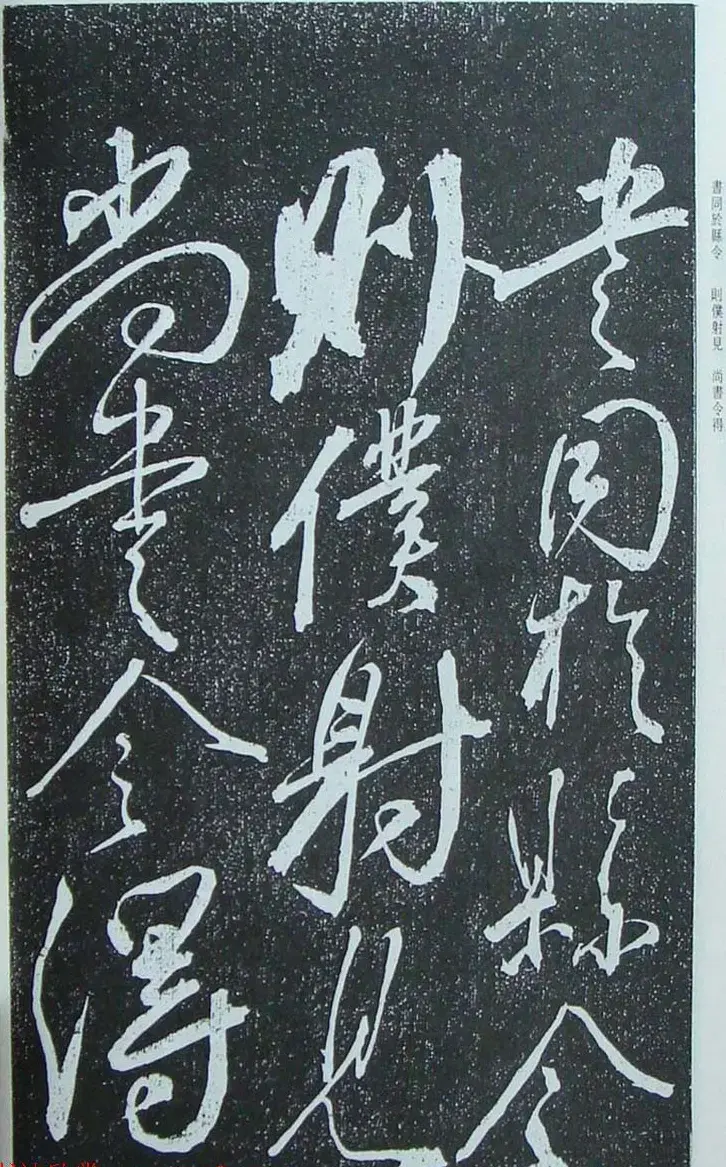 書同於縣令
則僕射見
尚書令得
書同於縣令 則僕射見 尚書令得